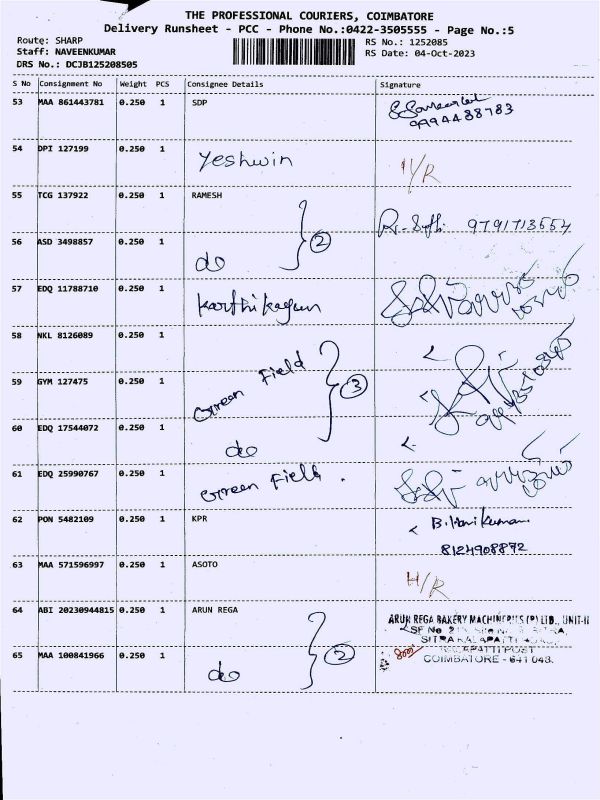 THE PROFESSIONAL COURIERS, COIMBATORE
Delivery Runsheet - PCC - Phone No.:0422-3505555 - Page No.:5
Route: SHARP
RS No.: 1252085
Staff: NAVEENKUMAR
RS Date: 04-Oct-2023
DRS No.: DCJB125208505
S No Consignment No Weight PCS Consignee Details Signature
53 MAA 861443781 0.250 1 SDP
9994488783
54 DPI 127199 0.250 1 Yeshwin
55 TCG 137922 0.250 1 RAMESH
9791713554
56 ASD 3498857 0.250 1 do 2
57 EDQ 11788710 0.250 1 Karthikagun
58 NKL 8126089 0.250 1
59 GYM 127475 0.250 1 Green Field 3
60 EDQ 17544072 0.250 1 do
61 EDQ 25990767 0.250 1 Green Field.
62 PON 5482109 0.250 1 KPR B. Harikumar
8124908872
63 MAA 571596997 0.250 1 ASOTO H/R
64 ABI 20230944815 0.250 1 ARUN REGA
ARUN REGA BAKERY MACHINERIES (P) LTD., UNIT-II
SF No
SITRA KALAPATTI
65 MAA 100841966 0.250 1 do 2
KALAPATTI POST
COIMBATORE - 641 048.